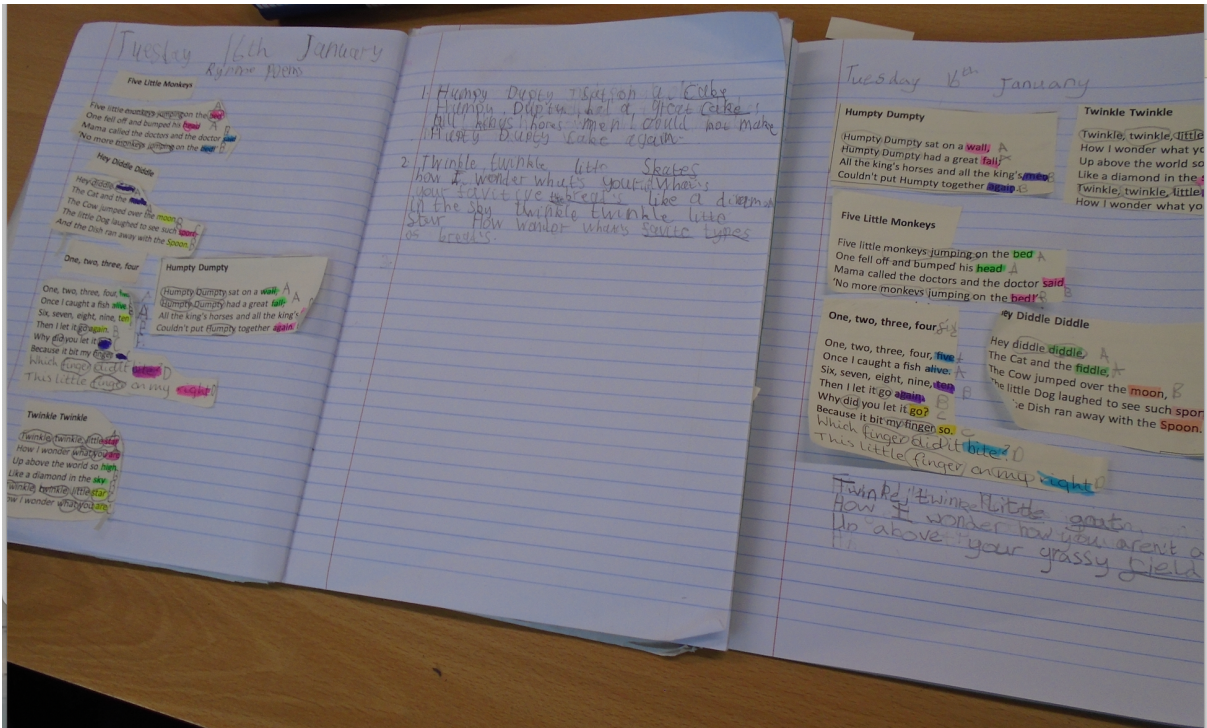 Tuesday 16th January
Ryhme Poem
Five Little Monkeys
Five little monkeys jumping on the bed
One fell off and bumped his head A
Mama called the doctors and the doctor
'No more monkeys jumping on the bed B
Hey Diddle Diddle
Hey diddle
The Cat and the
The Cow jumped over the moon,
The little Dog laughed to see such sport,
And the Dish ran away with the Spoon.
One, two, three, four
One, two, three, four, five
Once I caught a fish alive.
Six, seven, eight, nine, ten
Then I let it go again.
Why did you let it
Because it bit my finger
Which finger did it bite D
This little finger on my right D
Humpty Dumpty
Humpty Dumpty sat on a wall, A
Humpty Dumpty had a great fall, A
All the king's horses and all the king's
Couldn't put Humpty together again.
Twinkle Twinkle
Twinkle, twinkle, little star
How I wonder what you are
Up above the world so high,
Like a diamond in the sky
Twinkle, twinkle little star
How I wonder what you are
1. Humpy Dupty on a
Humpy Dupty had a great cake
all horses men could not make
Humpty Dumpy cake again.
2. Twinkle twinkle little Skates
how I wonder what's your
your like a
in the sky twinkle twinkle
Star How wonder types
of
Tuesday 16th January
Humpty Dumpty
Humpty Dumpty sat on a wall, A
Humpty Dumpty had a great fall, A
All the king's horses and all the king's men B
Couldn't put Humpty together again. B
Twinkle Twinkle
Twinkle, twinkle, little
How I wonder what yo
Up above the world so
Like a diamond in the
Twinkle, twinkle, little
How I wonder what yo
Five Little Monkeys
Five little monkeys jumping on the bed A
One fell off and bumped his head A
Mama called the doctors and the doctor said, B
'No more monkeys jumping on the bed!' B
One, two, three, four, six
One, two, three, four, five A
Once I caught a fish alive. A
Six, seven, eight, nine, ten B
Then I let it go again. B
Why did you let it go? C
Because it bit my finger so. C
Which finger did it bite? D
This little finger on my right D
ey Diddle Diddle
Hey diddle diddle, A
The Cat and the fiddle, A
The Cow jumped over the moon, B
The little Dog laughed to see such spor
e Dish ran away with the Spoon.
Twinkle, twinkle little goat
How I wonder how you aren't a
Up above your grassy field